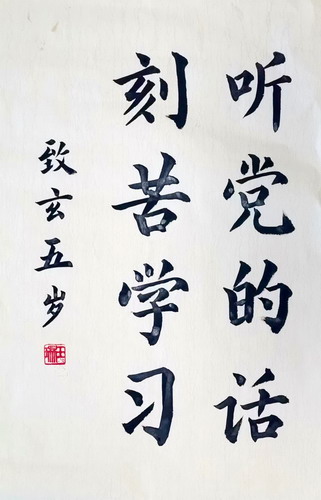 听党的话
刻苦学习
致玄五岁